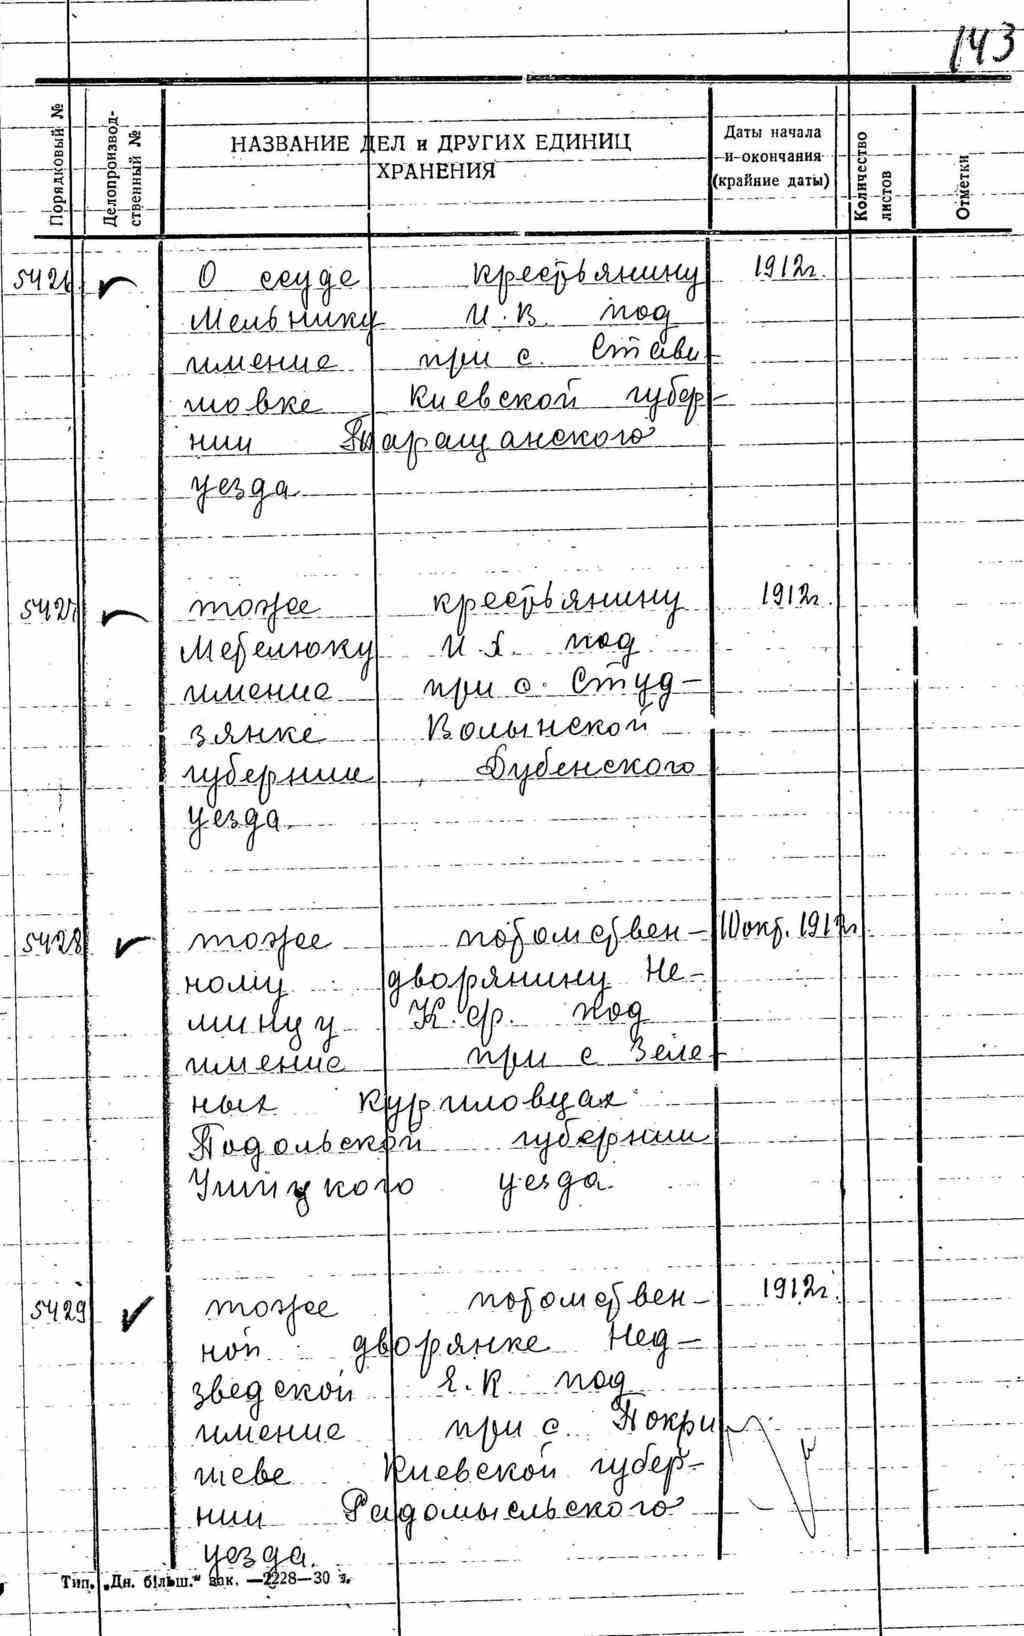 143
Порядковый №
Делопроизвод-
ственный №
НАЗВАНИЕ ДЕЛ и ДРУГИХ ЕДИНИЦ
ХРАНЕНИЯ
Даты начала
и окончания
(крайние даты)
Количество
листов
Отметки
5426 О ссуде крестьянину 1912г.
Мельнику И.В. под
имение при с. Стави-
шовке Киевской губер-
нии Таращанского
уезда
5427 тоже крестьянину 1912г.
И.Я. под
имение при с. Студ-
зянке Волынской
губернии, Дубенского
уезда.
5428 тоже потомствен- 10 окт. 1912г
ному дворянину Не-
мину у К.Ф. под
имение при с Зеле-
ных Куриловцах
Подольской губернии
Ушицкого уезда.
5429 тоже потомствен- 1912г.
ной дворянке Нед-
зведской Я.К под
имение при с. Покри
шеве Киевской губер-
нии Радомысльского
уезда.
Тип. „Дн. більш.“ зак. —2228—30 г.